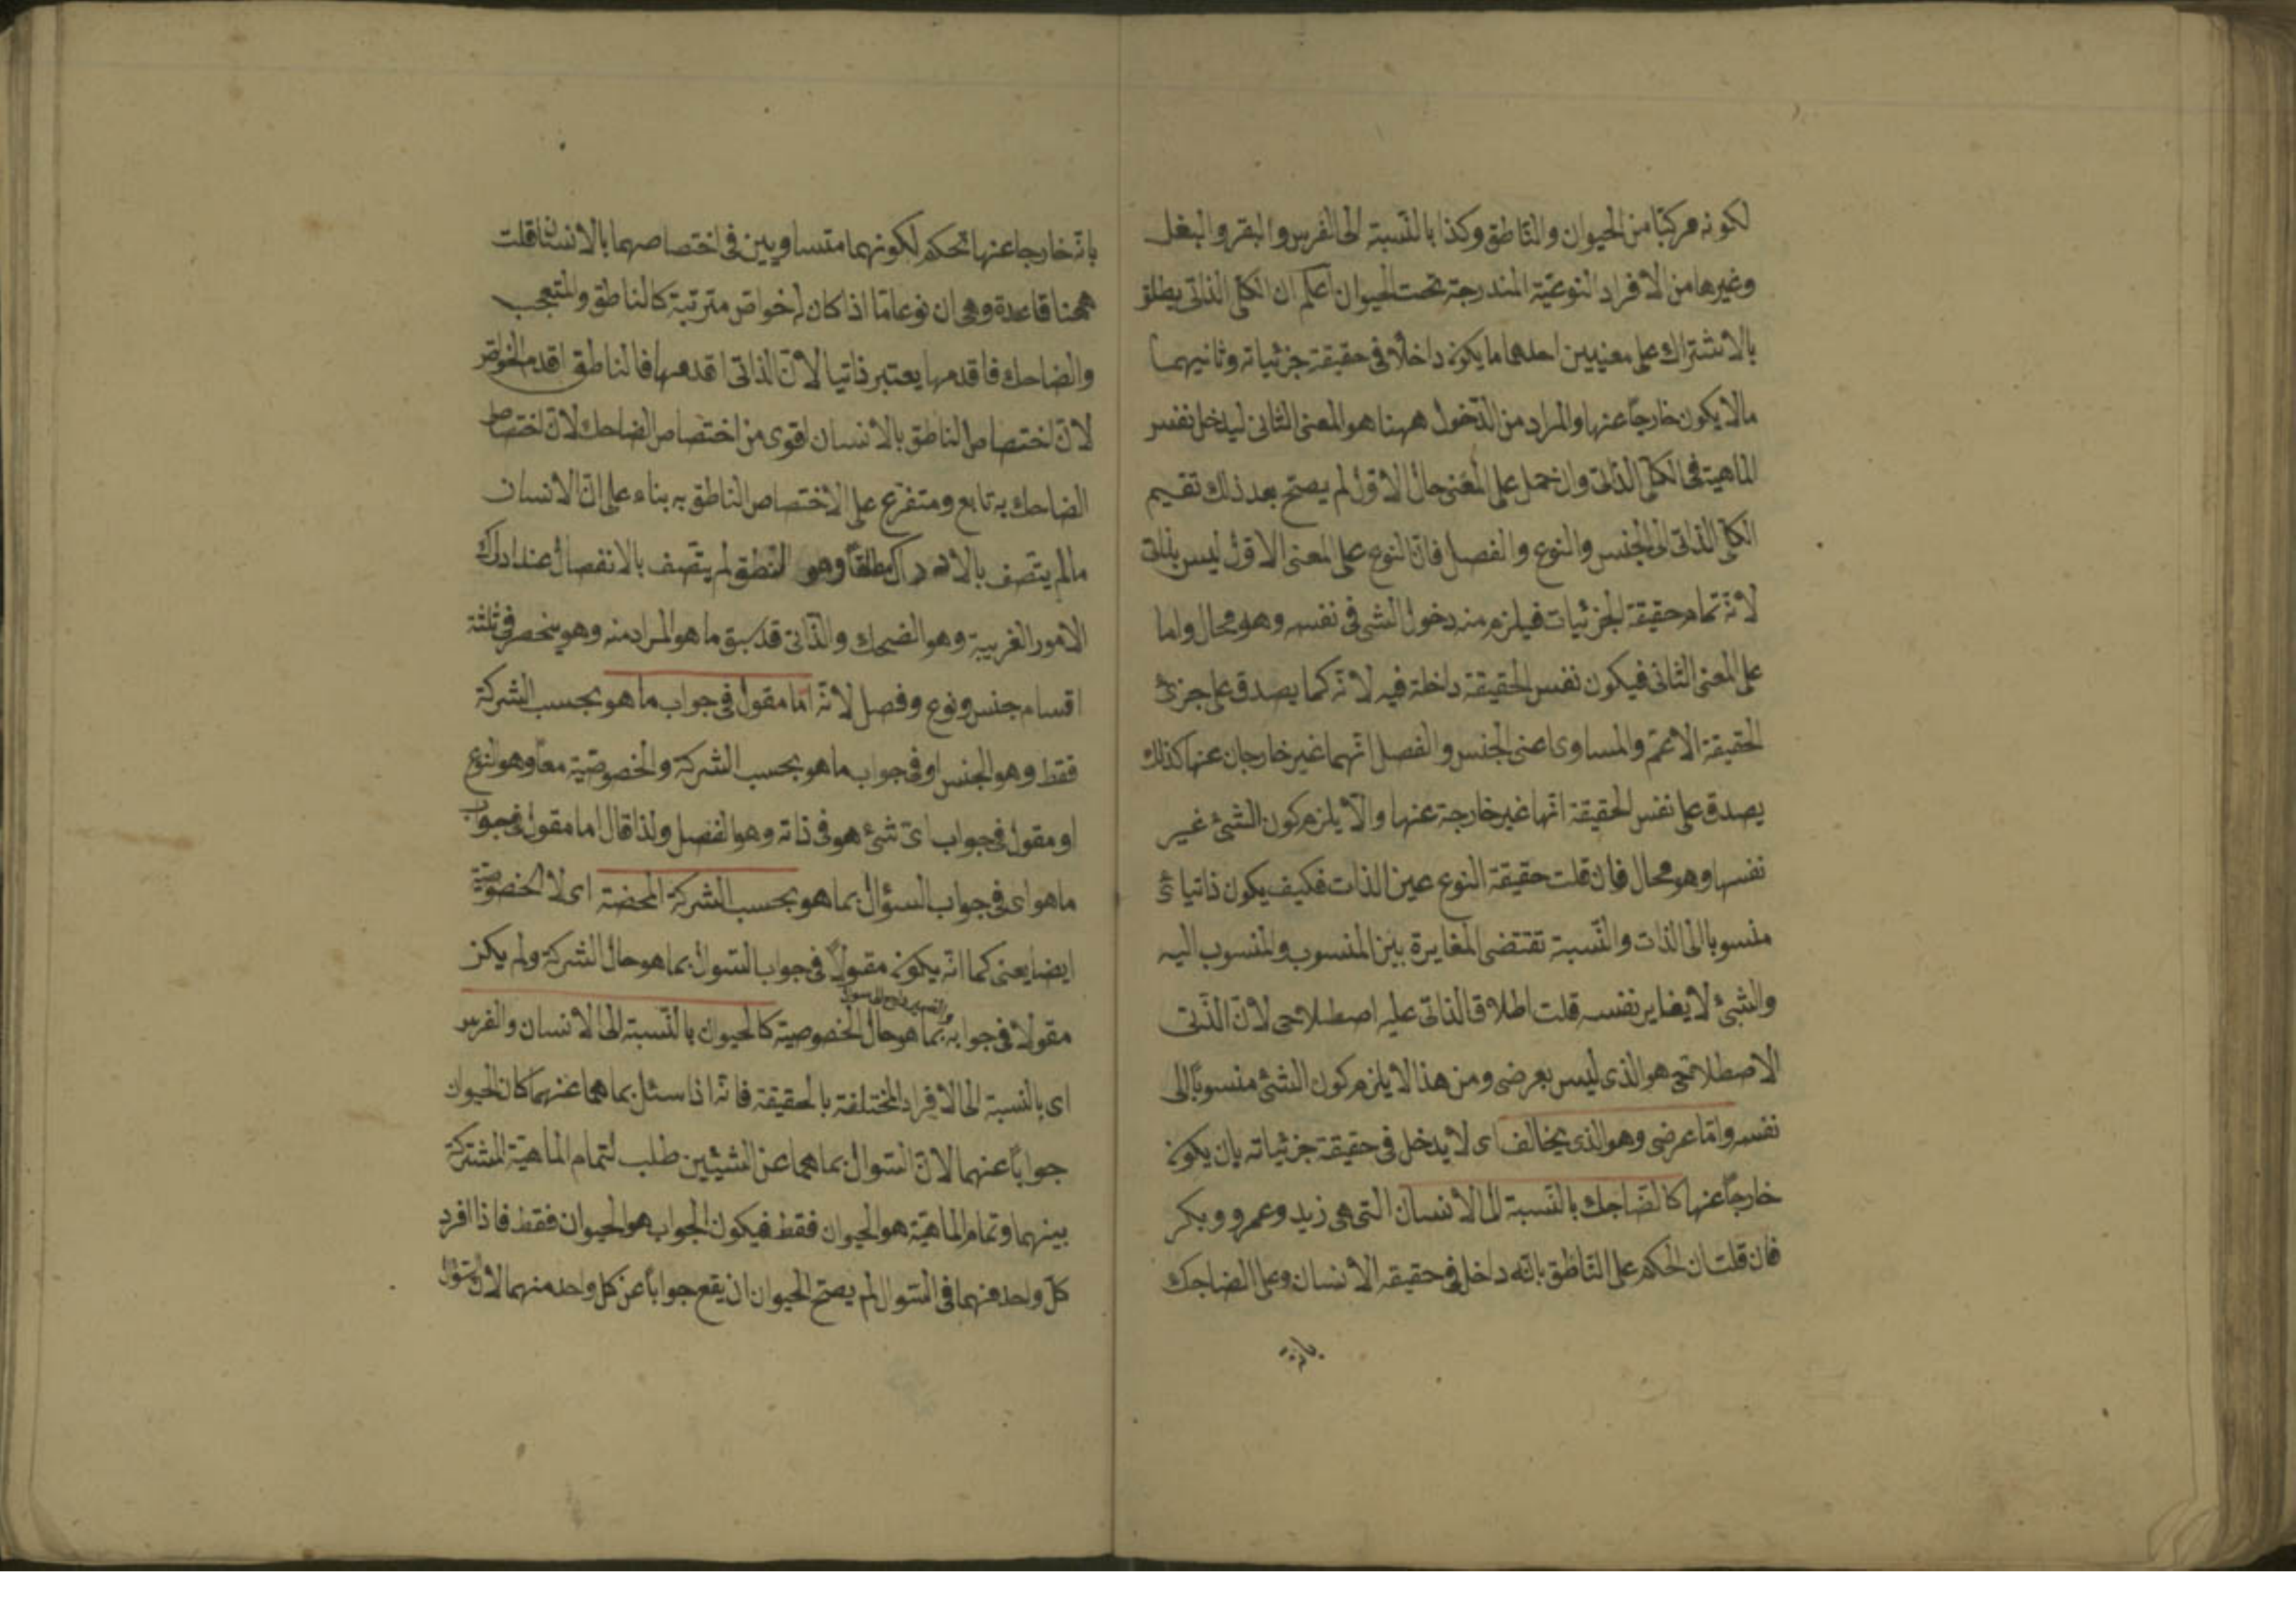 لكونه مركبا من الحيوان والناطق وكذا بالنسبة الى الفرس والبقر والبغل
وغيرها من الافراد النوعية المندرجة تحت الحيوان اعلم ان الكلى الذاتى يطلق
بالاشتراك على معنيين احدهما ما يكون داخلا فى حقيقة جزئياته وثانيهما
مالا يكون خارجا عنها والمراد من الدخول ههنا هو المعنى الثانى ليدخل نفس
الماهية فى الكلى الذاتى وان حمل على المعنى حال الاول لم يصح بعد ذلك تقسيم
الكلى الذاتى الى الجنس والنوع والفصل فان النوع على المعنى الاول ليس بذاتى
لانه تمام حقيقة الجزئيات فيلزم منه دخول الشى فى نفسه وهو محال واما
على المعنى الثانى فيكون نفس الحقيقة داخلة فيه لانه كما يصدق على جزئ
الحقيقة الاعم والمساوى اعنى الجنس والفصل انهما غير خارجان عنها كذلك
يصدق على نفس الحقيقة انها غير خارجة عنها والا يلزم كون الشئ غير
نفسها وهو محال فان قلت حقيقة النوع عين الذات فكيف يكون ذاتيا اى
منسوبا الى الذات والنسبة تقتضى المغايرة بين المنسوب والمنسوب اليه
والشئ لا يغاير نفسه قلت اطلاق الذاتى عليه اصطلاحى لان الذتى
الاصطلاحى هو الذى ليس بعرضى ومن هذا لا يلزم كون الشئ منسوبا الى
نفسه واما عرضى وهو الذى يخالف اى لا يدخل فى حقيقة جزئياته بان يكون
خارجا عنها كالضاحك بالنسبة الى الانسان التى هى زيد وعمرو وبكر
فان قلت ان الحكم على الناطق بانه داخل فى حقيقة الانسان وعلى الضاحك
بانه
بانه خارجا عنها تحكم لكونهما متساويين فى اختصاصهما بالانسان قلت
ههنا قاعدة وهى ان نوعا ما اذا كان له خواص مترتبة كالناطق والمتعجب
والضاحك فاقدمها يعتبر ذاتيا لان الذاتى اقدمها فالناطق اقدم الخواص
لان اختصاص الناطق بالانسان اقوى من اختصاص الضاحك لان اختصاص
الضاحك به تابع ومتفرع على الاختصاص الناطق به بناء على ان الانسان
مالم يتصف بالادراك مطلقا وهو النطق لم يتصف بالانفصال عند ادراك
الامور الغريبة وهو الضحك والذاتى قد سبق ما هو المراد منه وهو ينحصر فى ثلثة
اقسام جنس ونوع وفصل لانه اما مقول فى جواب ما هو بحسب الشركة
فقط وهو الجنس او فى جواب ما هو بحسب الشركة والخصوصية معا وهو النوع
او مقول فى جواب اى شئ هو فى ذاته وهو الفصل ولذا قال اما مقول فى جواب
ما هو اى فى جواب السؤال بما هو بحسب الشركة المحضة اى لا الخصوصية
ايضا يعنى كما انه يكون مقولا فى جواب السوال بما هو حال الشركة ولم يكن
مقولا فى جوابه بما هو حال الخصوصية كالحيوان بالنسبة الى الانسان والفرس
اى بالنسبة الى الافراد المختلفة بالحقيقة فانه اذا سئل بما هما عنهما كان الحيوان
جوابا عنهما لان السوال بما هما عن الشيئين طلب لتمام الماهية المشتركة
بينهما وتمام الماهية هو الحيوان فقط فيكون الجواب هو الحيوان فقط فاذا افرد
كل واحد منهما فى السوال لم يصح الحيوان ان يقع جوابا عن كل واحد منهما لان السؤال